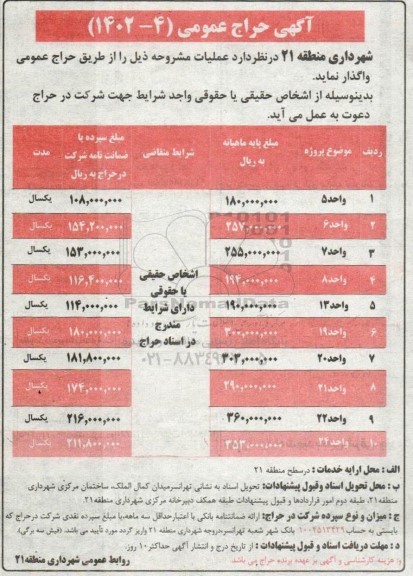 آگهی حراج عمومی (۴- ۱۴۰۲)
شهرداری منطقه ۲۱ درنظردارد عملیات مشروحه ذیل را از طریق حراج عمومی
واگذار نماید.
بدینوسیله از اشخاص حقیقی یا حقوقی واجد شرایط جهت شرکت در حراج
دعوت به عمل می آید.
ردیف موضوع پروژه مبلغ پایه ماهیانه به ریال شرایط متقاضی مبلغ سپرده یا ضمانت نامه شرکت درحراج به ریال مدت
۱ واحد۵ ۱۸۰,۰۰۰,۰۰۰ ۱۰۸,۰۰۰,۰۰۰ یکسال
۲ واحد۶ ۲۵۷,۰۰۰,۰۰۰ ۱۵۴,۲۰۰,۰۰۰ یکسال
۳ واحد۷ ۲۵۵,۰۰۰,۰۰۰ ۱۵۳,۰۰۰,۰۰۰ یکسال
۴ واحد۸ ۱۹۴,۰۰۰,۰۰۰ ۱۱۶,۴۰۰,۰۰۰ یکسال
۵ واحد۱۳ ۱۹۰,۰۰۰,۰۰۰ ۱۱۴,۰۰۰,۰۰۰ یکسال
۶ واحد۱۹ ۳۰۰,۰۰۰,۰۰۰ ۱۸۰,۰۰۰,۰۰۰ یکسال
۷ واحد۲۰ ۳۰۳,۰۰۰,۰۰۰ ۱۸۱,۸۰۰,۰۰۰ یکسال
۸ واحد۲۱ ۲۹۰,۰۰۰,۰۰۰ ۱۷۴,۰۰۰,۰۰۰ یکسال
۹ واحد۲۲ ۳۶۰,۰۰۰,۰۰۰ ۲۱۶,۰۰۰,۰۰۰ یکسال
۱۰ ۳۵۳,۰۰۰,۰۰۰ ۲۱۱,۸۰۰,۰۰۰ یکسال
اشخاص حقیقی
یا حقوقی
دارای شرایط
مندرج
در اسناد حراج
الف : محل ارایه خدمات : درسطح منطقه ۲۱
ب : محل تحویل اسناد وقبول پیشنهادات: تحویل اسناد به نشانی تهرانسرمیدان کمال الملک، ساختمان مرکزی شهرداری
منطقه۲۱، طبقه دوم امور قراردادها و قبول پیشنهادات طبقه همکف دبیرخانه مرکزی شهرداری منطقه۲۱
ج : میزان و نوع سپرده شرکت در حراج: ارائه ضمانتنامه بانکی با اعتبارحداقل سه ماهه،یا مبلغ سپرده نقدی شرکت درحراج که
بایستی به حساب بانک شهر شعبه تهرانسردروجه شهرداری منطقه ۲۱ واریز گردد مورد تأیید می باشد. (فیش بنه برگی).
د : مهلت دریافت اسناد و قبول پیشنهادات : از تاریخ درج و انتشار آگهی حداکثر۱۰ روز.
وا هزینه کارشناسی و آگهی بر عهده برنده حراج می باشد
روابط عمومی شهرداری منطقه۲۱